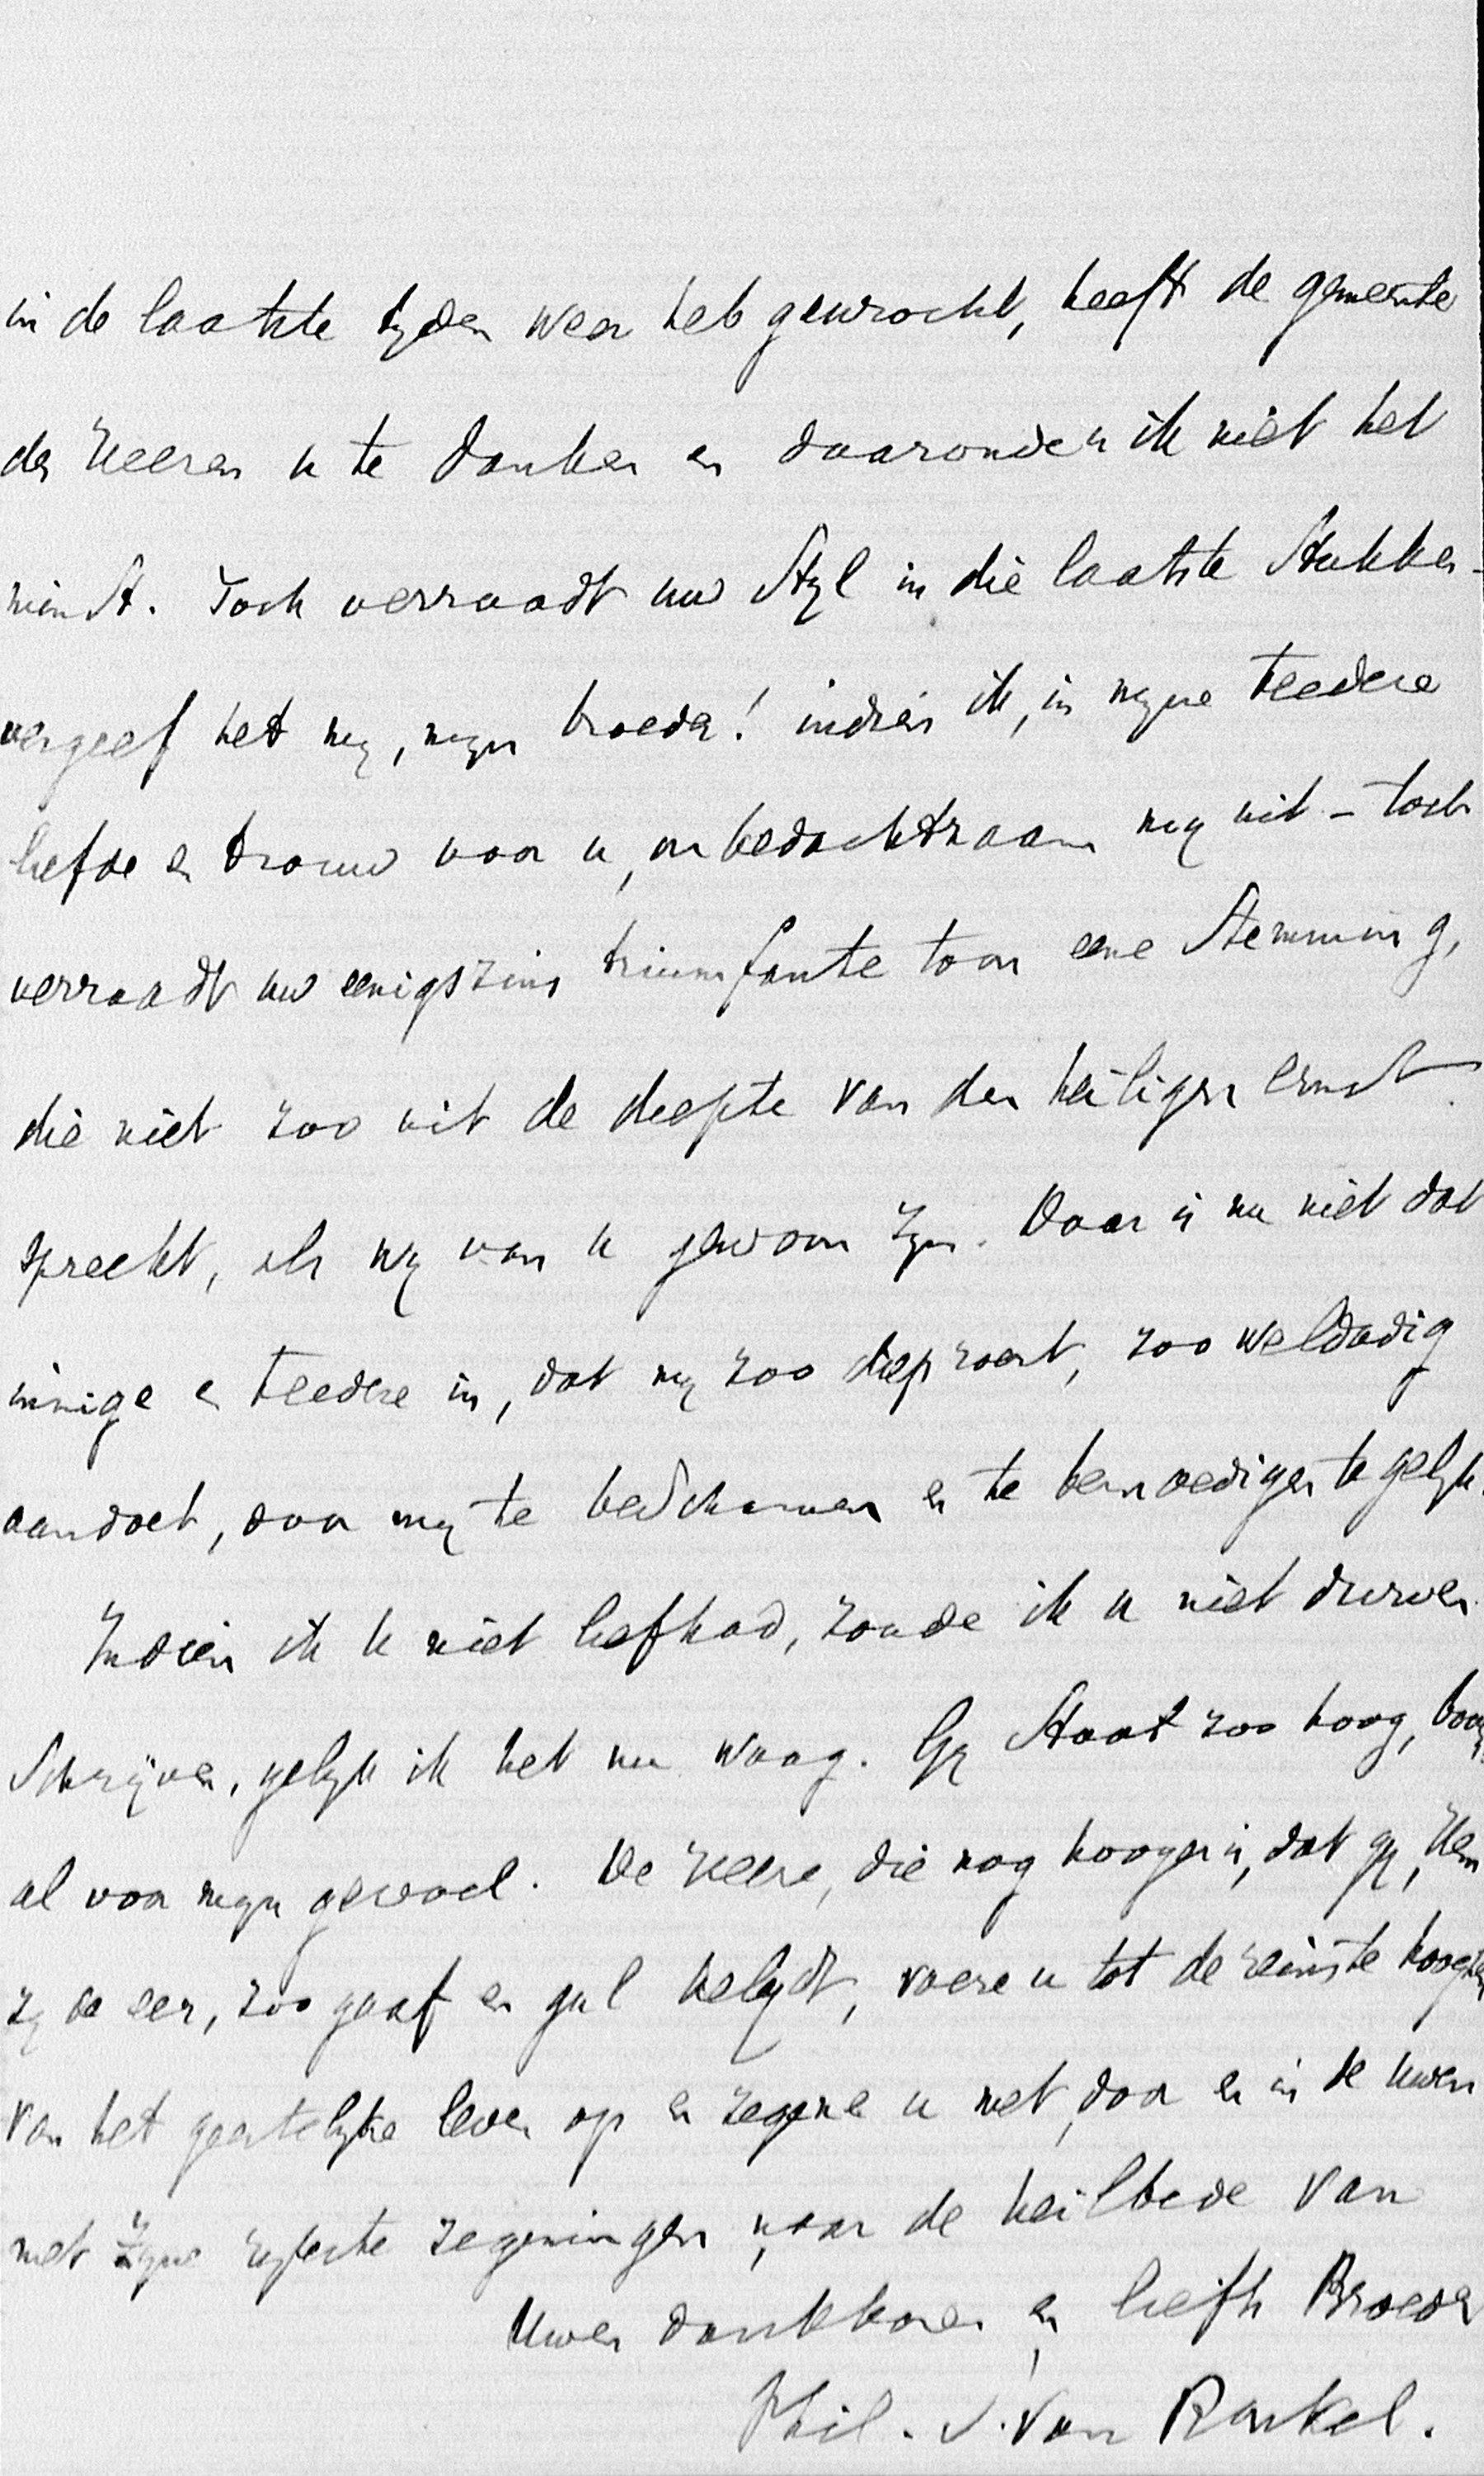 in de laatste tyden weer heb gewrocht, heeft de gemeente
des Heeren u te danken en daaronder ik niet het
minst. Toch verraadt uw Styl in die laatste Stukken -
vergeef het my, myn broeder! indien ik, in myne teedere
liefde en trouw voor u, onbedachtzaam my uit - toch
verraadt uw eenigszins triumfante toon eene Stemming,
die niet zoo uit de diepte van den heiligen ernst
spreekt, als wy van u gewoon zyn. Daar is nu niet dat
innige en teedere in, dat my zoo diep roert, zoo weldadig
aandoet, door my te beschamen en te bemoedigen te gelyk.
Indien ik u niet liefhad, zoude ik u niet durven
Schrijven, gelyk ik het nu waag. Gy Staat zoo hoog, boven
al voor myn gevoel. De Heere, die nog hooger is, dat gy, Hem
zy de eer, zoo gaaf en gul belydt, voere u tot de reinste hoogten
van het geestelyke leven op en zegene u met, door en in de uwen
met Zyne rykste zegeningen, naar de heilbede van
Uwen dankbaren en liefh Broeder
Phil. J. Van Ronkel.